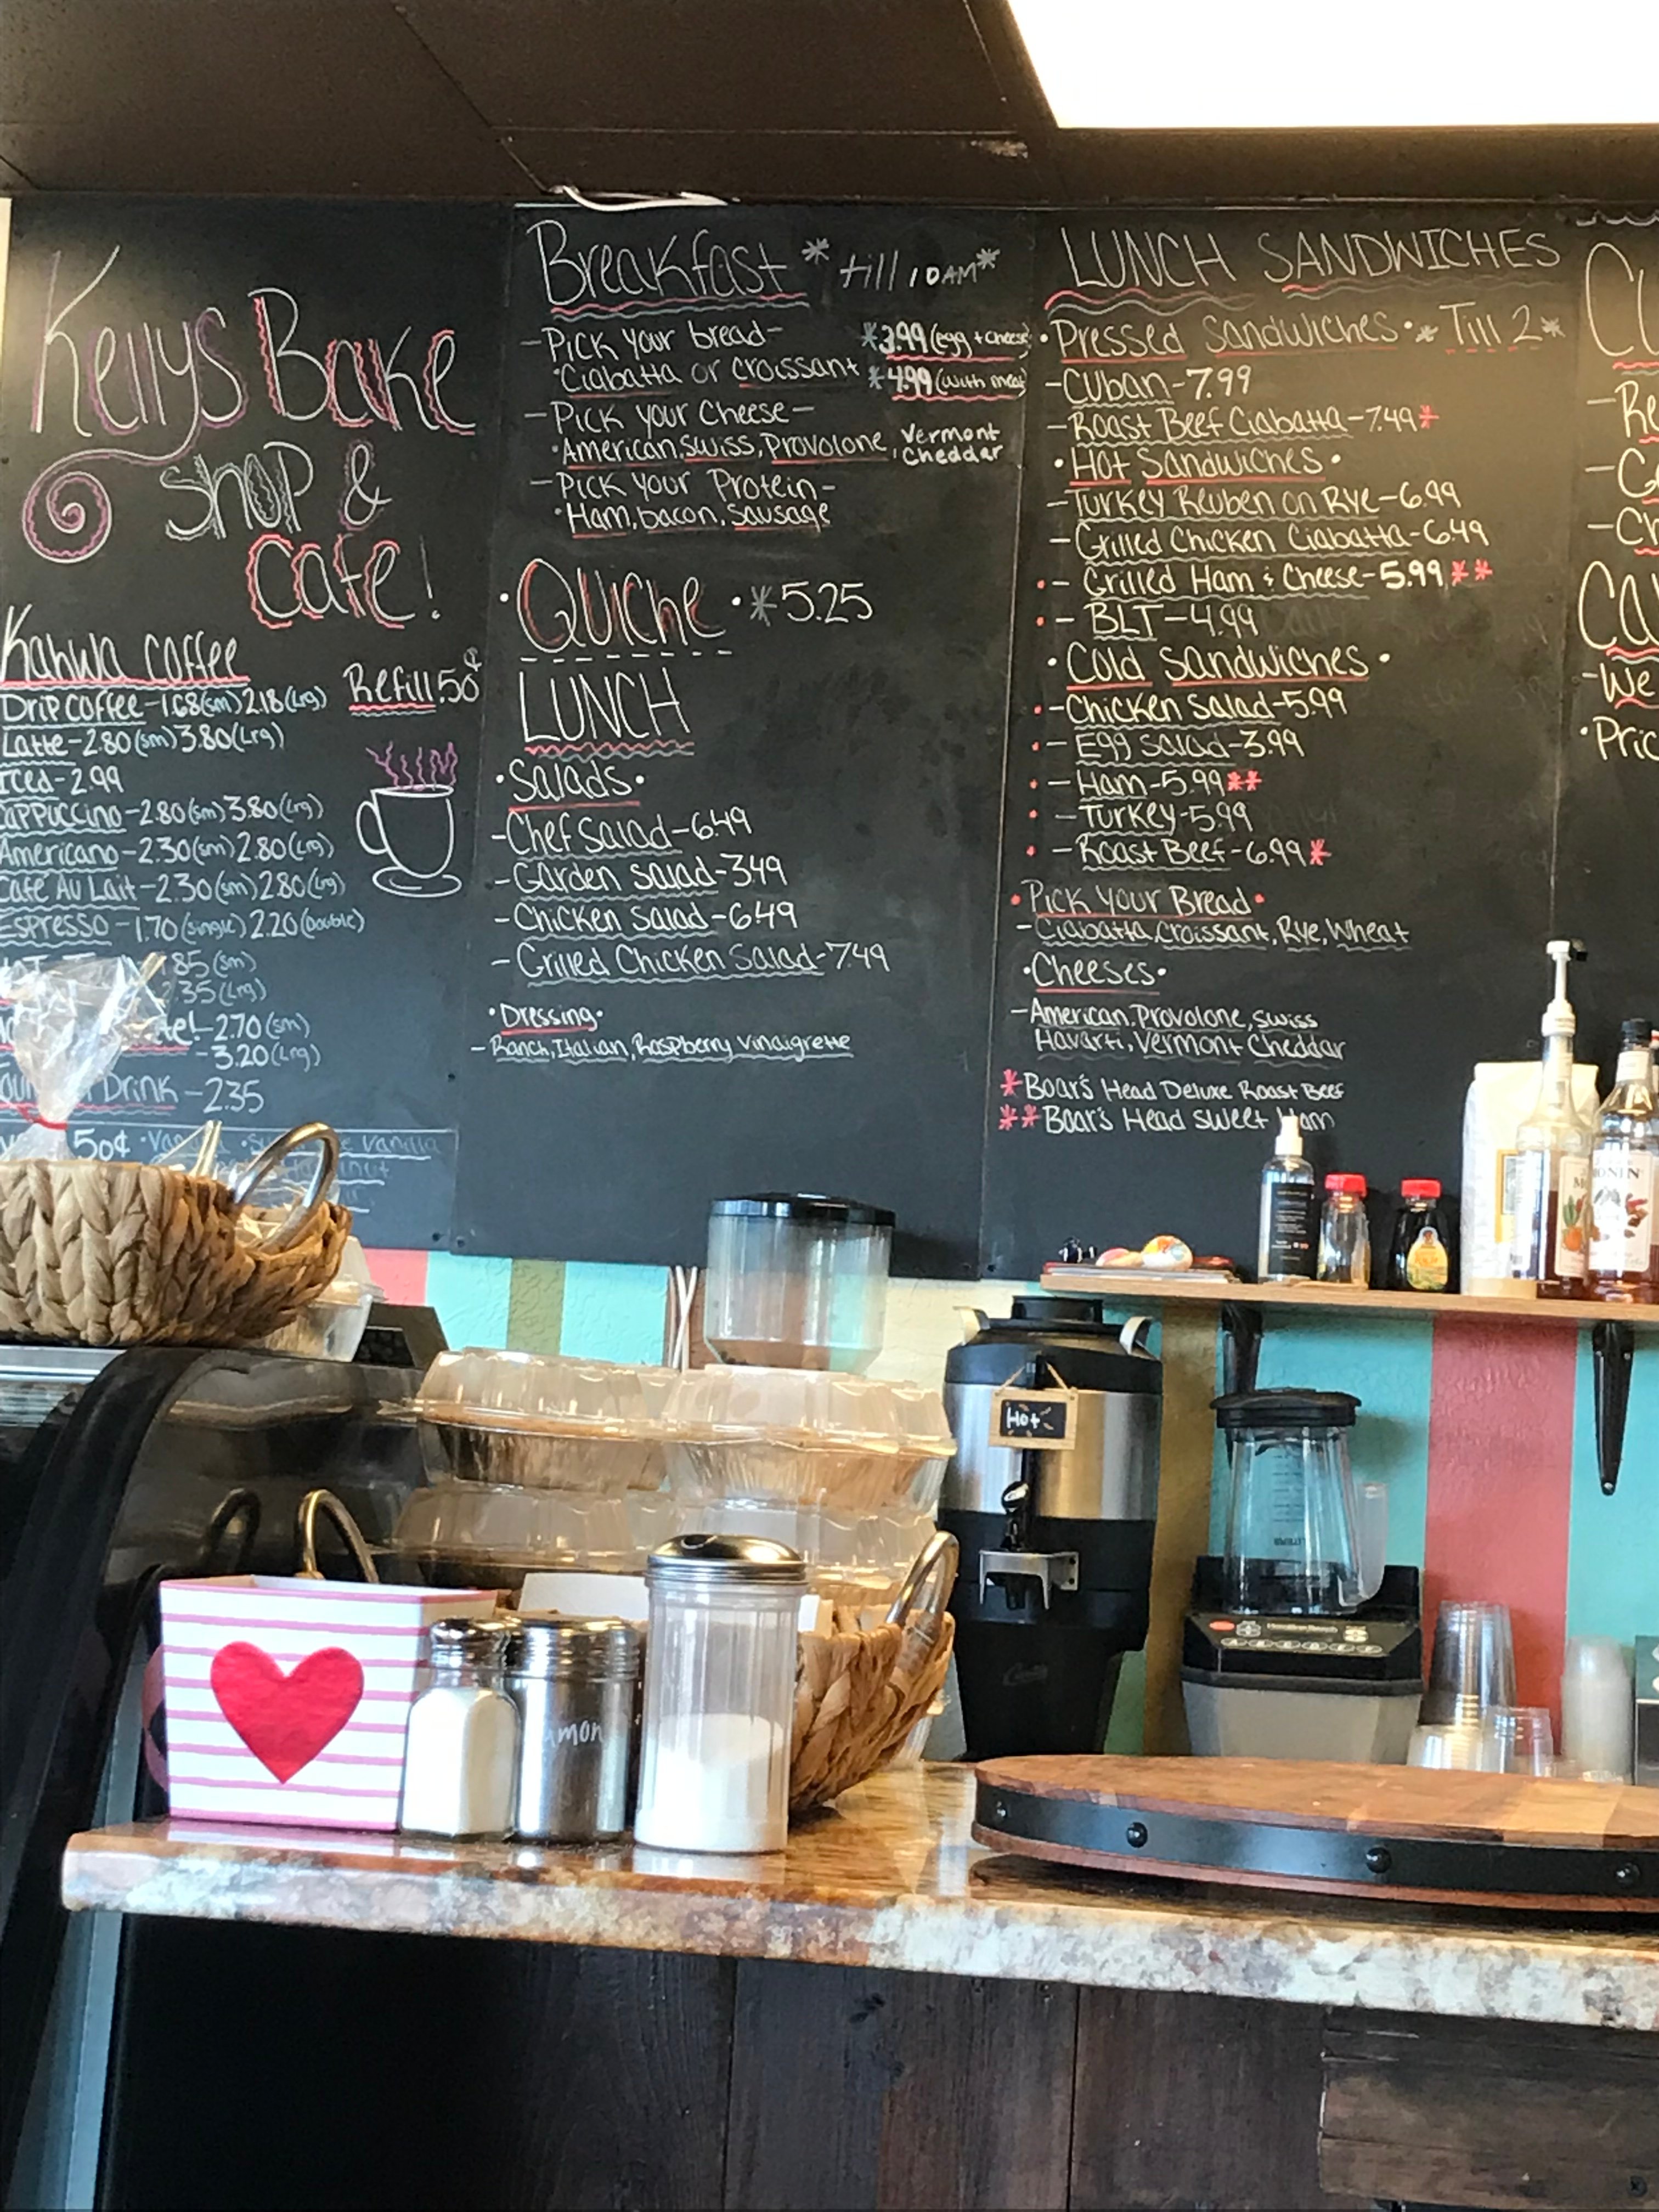 Kellys Bake
Shop &
Cafe!
Kahwa Coffee
Refill 50¢
Drip Coffee - 1.68(sm) 2.18(Lrg)
Latte - 2.80(sm) 3.80(Lrg)
Iced - 2.99
Cappuccino - 2.80(sm) 3.80(Lrg)
Americano - 2.30(sm) 2.80(Lrg)
Cafe Au Lait - 2.30(sm) 2.80(Lrg)
Espresso - 1.70(single) 2.20(Double)
85(sm)
2.35(Lrg)
- 2.70(sm)
- 3.20(Lrg)
Drink - 2.35
50¢
Vanilla
Breakfast * till 10AM*
- Pick your bread-
*3.99(egg + cheese)
•Ciabatta or croissant
*4.99(with meat)
- Pick your Cheese-
•American, Swiss, Provolone, Vermont
Cheddar
- Pick your Protein-
•Ham, bacon, sausage
•Quiche• *5.25
LUNCH
•Salads•
- Chef Salad - 6.49
- Garden Salad - 3.49
- Chicken Salad - 6.49
- Grilled Chicken Salad - 7.49
•Dressing•
- Ranch, Italian, Raspberry Vinaigrette
LUNCH SANDWICHES
•Pressed Sandwiches• *Till 2*
- Cuban - 7.99
- Roast Beef Ciabatta - 7.49*
•Hot Sandwiches•
- Turkey Reuben on Rye - 6.99
- Grilled Chicken Ciabatta - 6.49
• - Grilled Ham & Cheese - 5.99**
• - BLT - 4.99
•Cold Sandwiches•
• - Chicken Salad - 5.99
• - Egg Salad - 3.99
• - Ham - 5.99**
• - Turkey - 5.99
• - Roast Beef - 6.99*
•Pick Your Bread•
- Ciabatta, Croissant, Rye, Wheat
•Cheeses•
- American, Provolone, Swiss
Havarti, Vermont Cheddar
*Boar's Head Deluxe Roast Beef
**Boar's Head Sweet Ham
- We
Hot
MONIN